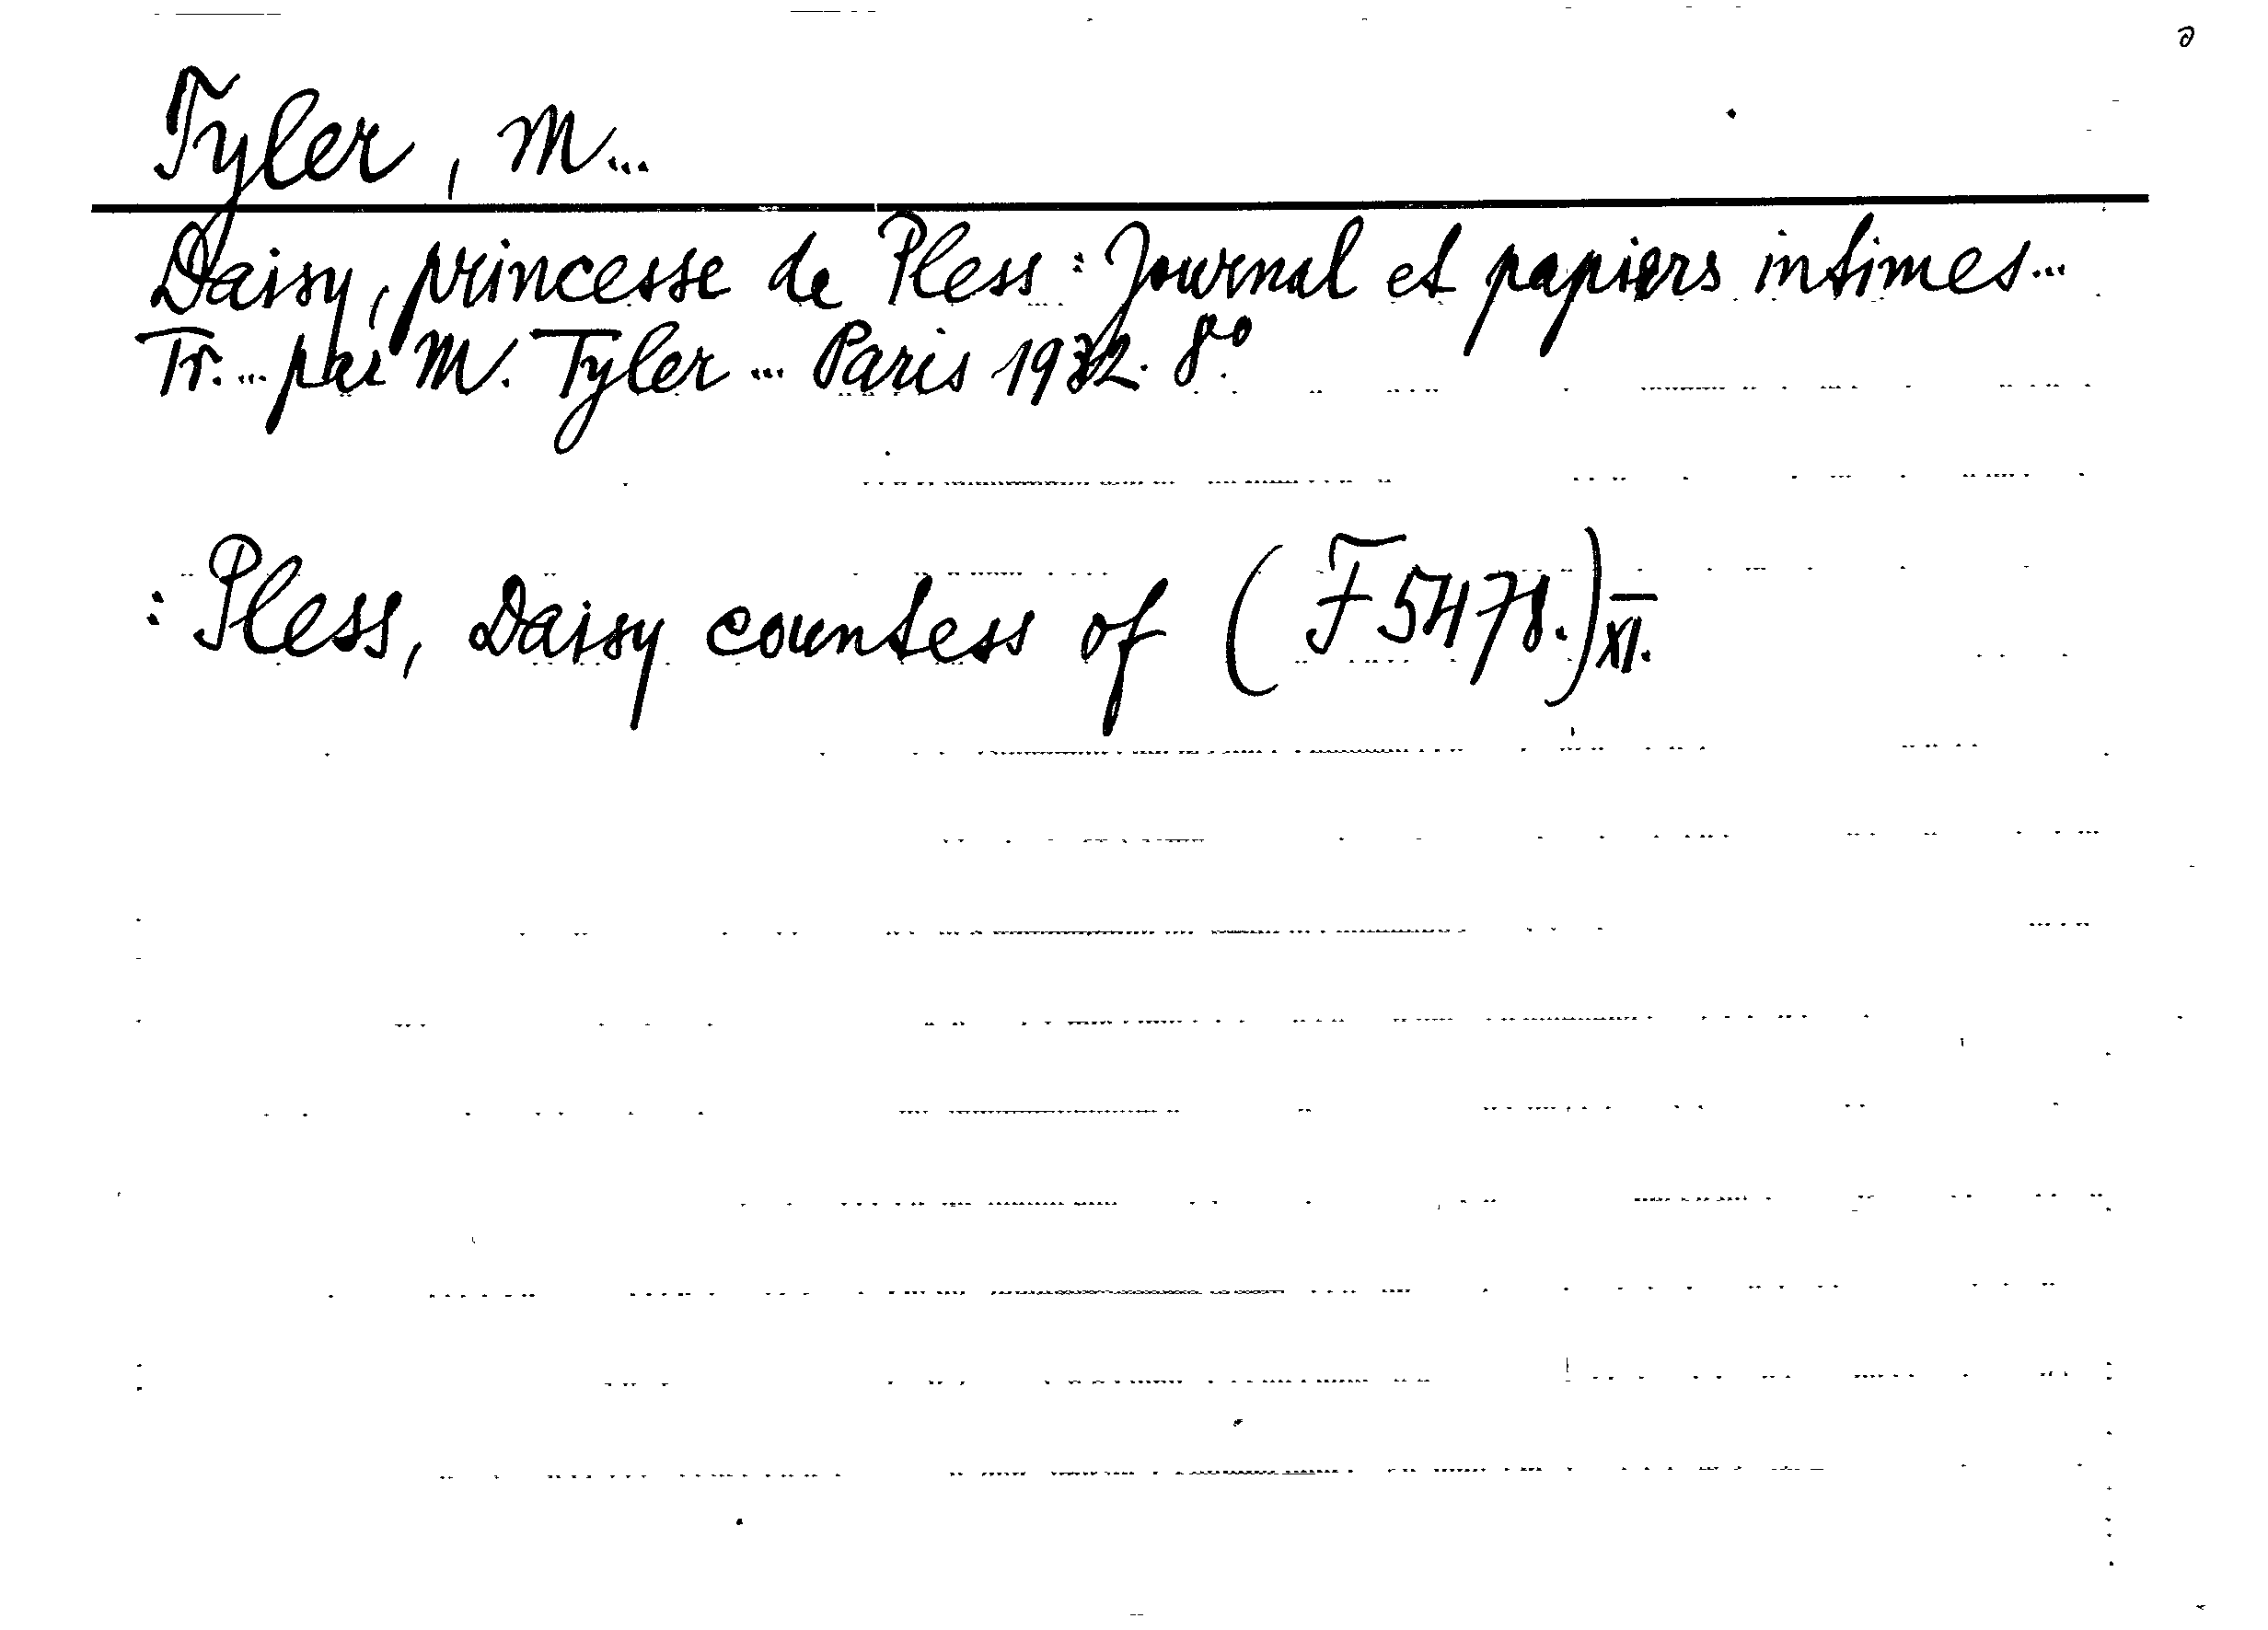 Tyler, M...
Daisy, princesse de Pless: Journal et papiers intimes...
Tr. ... par M. Tyler ... Paris 1932. 8°.
: Pless, Daisy countess of (F 5478.) XI.